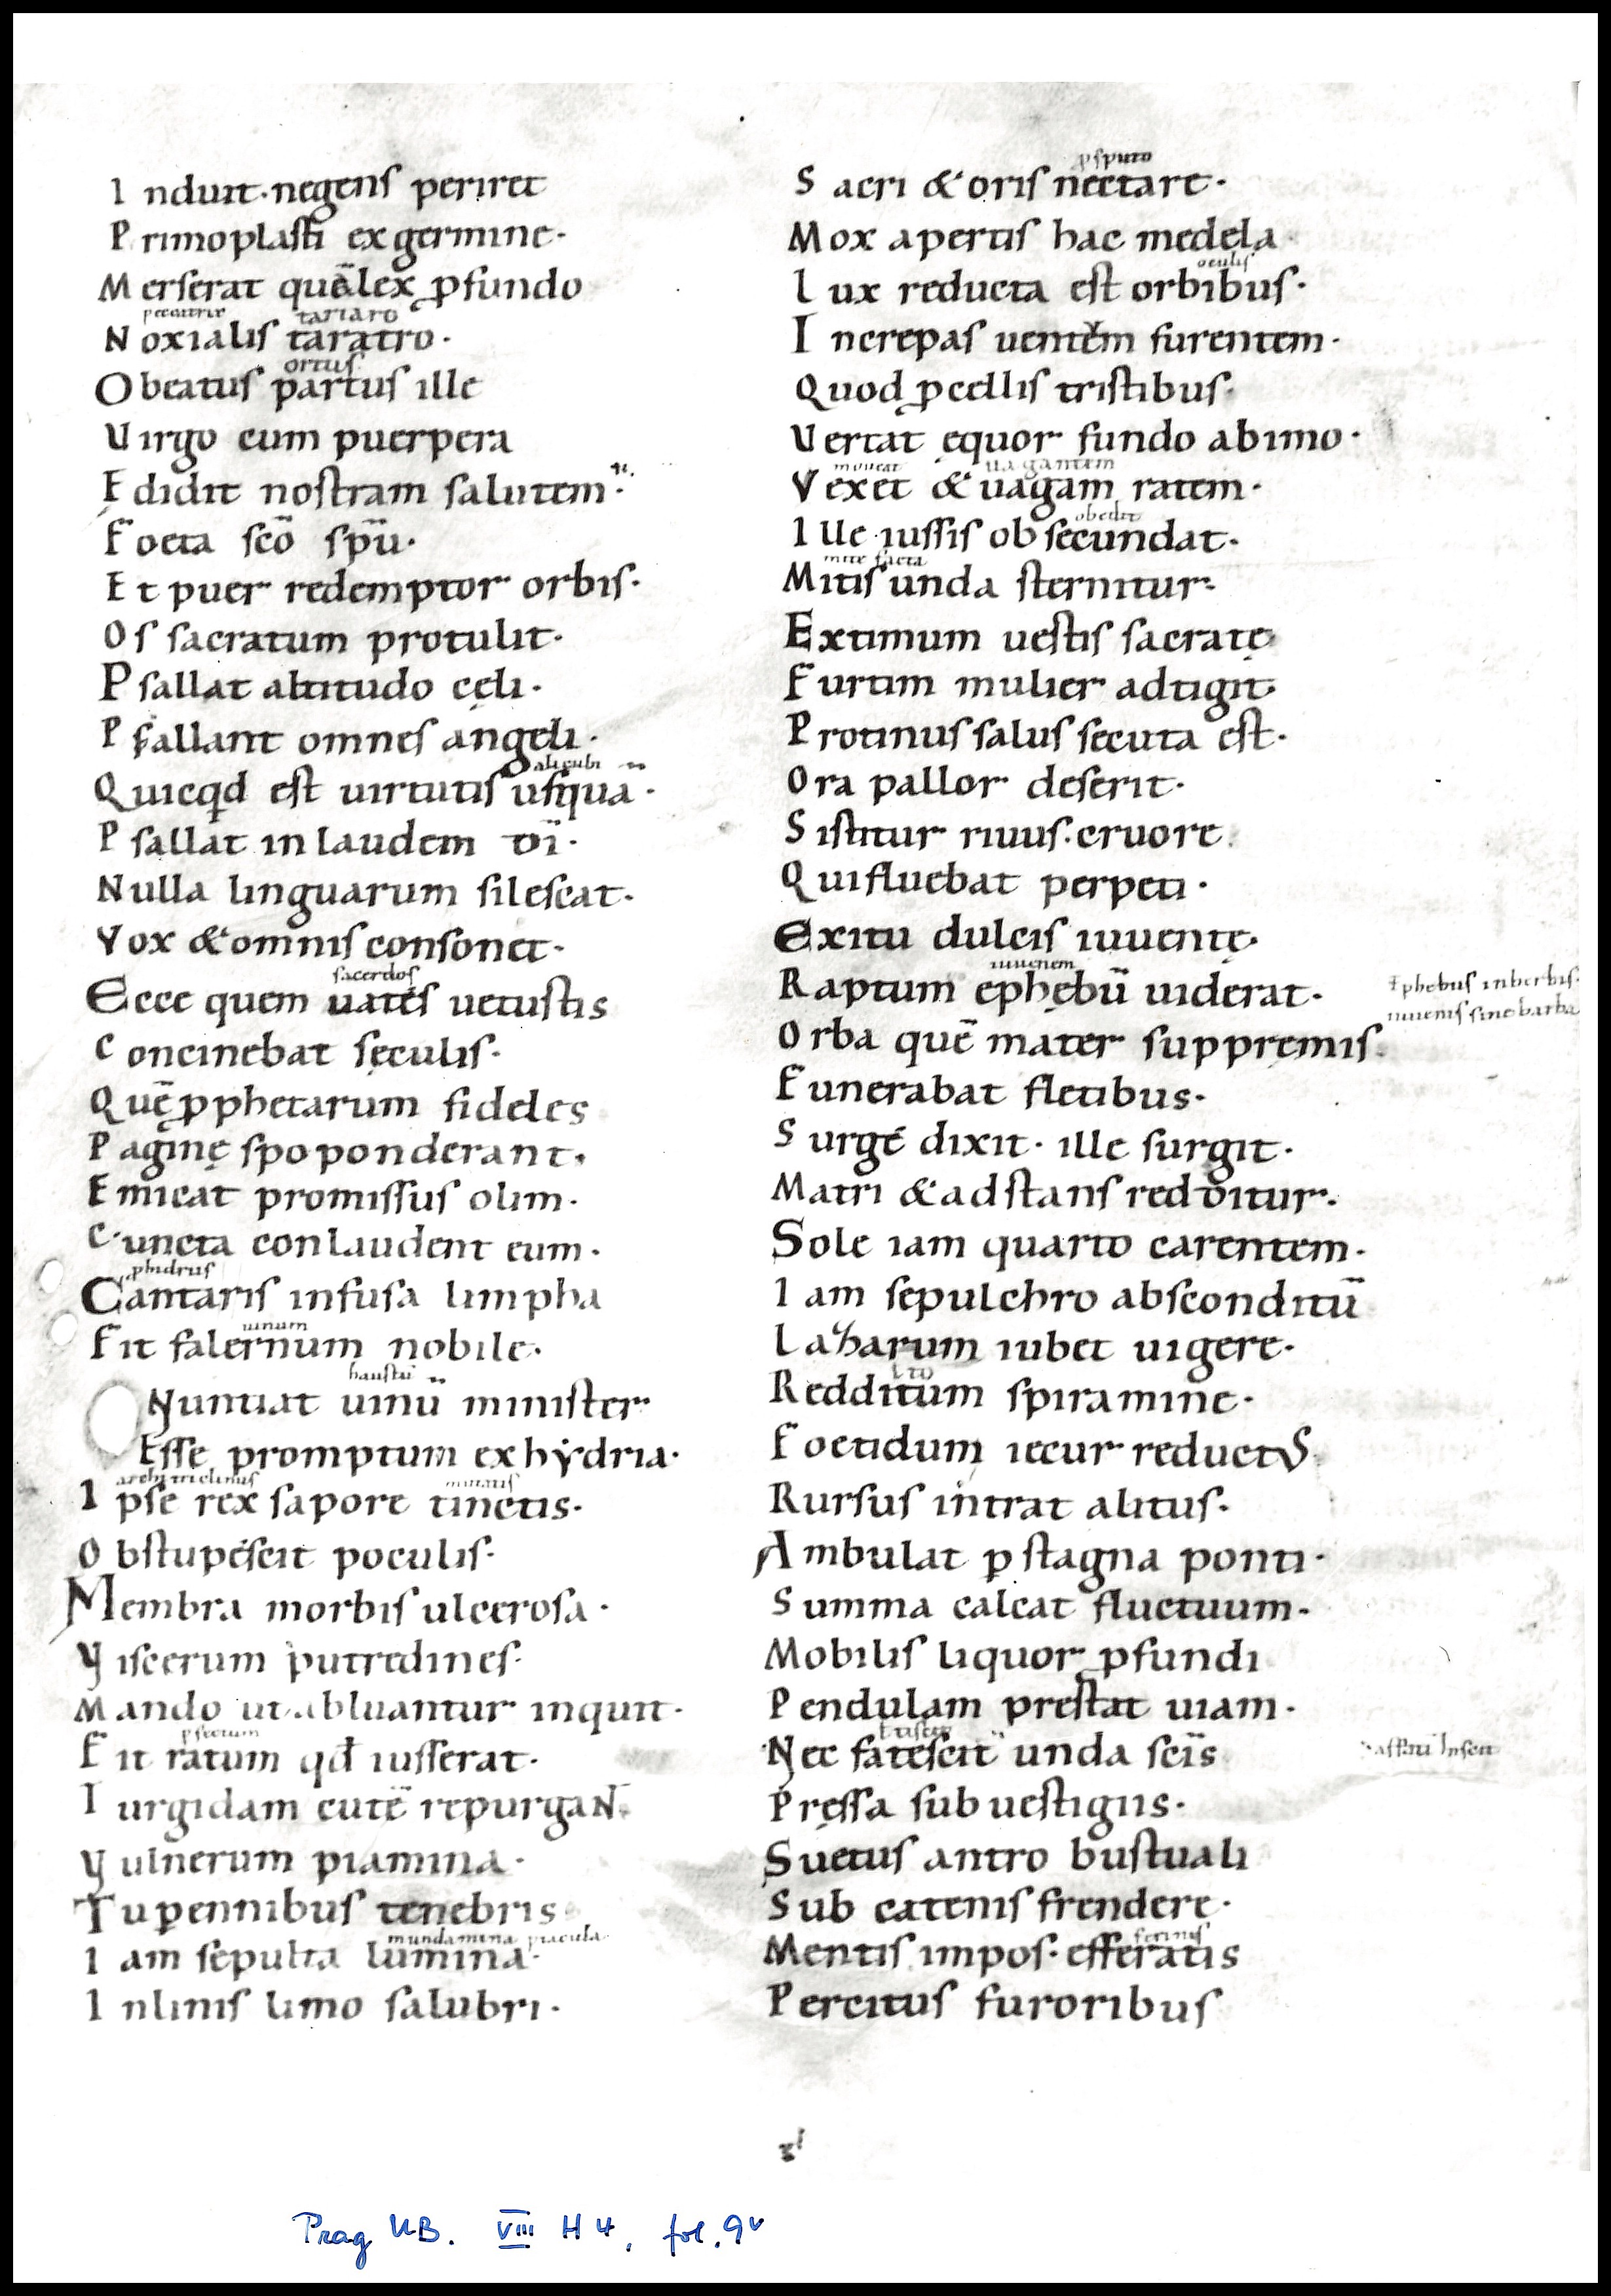 Induit. negens periret
Primoplasti exgermine.
Merserat quē lex ꝓfundo
peccatrix tartaro
Noxialis taratro.
ortus
O beatus partus ille
Uirgo cum puerpera
Ędidit nostram salutem.
Foeta scō spū.
Et puer redemptor orbis.
Os sacratum protulit.
Psallat altitudo cęli.
Psallant omnes angeli.
alicubi
Quicqd est uirtutis usqua.
Psallat in laudem dī.
Nulla linguarum silescat.
Vox & omnis consonet.
sacerdos
Ecce quem uates uetustis
Concinebat sęculis.
Quē ꝓphetarum fideles
Paginę spoponderant.
Emicat promissus olim.
Cuncta conlaudent eum.
phidrus
Cantaris infusa limpha
uinum
Fit falernum nobile.
haustū
Nuntiat uinū minister
Esse promptum exhẏdria.
architriclinus mutatis
Ipse rex sapore tinctis.
Obstupescit poculis.
Membra morbis ulcerosa.
Viscerum putredines.
Mando ut abluantur inquit.
Fit ratum qđ iusserat.
Turgidam cutē repurgaNt
Vulnerum piamina.
Tu pennibus tenebris
mundamina piacula
Iam sepulta lumina.
Inlinis limo salubri.
ꝓ sputo
Sacri & oris nectare.
Mox apertis hac medela
oculis
Lux reducta est orbibus.
Increpas uentēm furentem.
Quod ꝓcellis tristibus.
Vertat ęquor fundo abimo.
moueat uagantem
Vexet & uagam ratem.
obedit
Ille iussis obsecundat.
mite facta
Mitis unda sternitur.
Extimum uestis sacratę
Furtim mulier adtigit.
Protinus salus secuta est.
Ora pallor deserit.
Sistitur riuus. cruore
Quifluebat perpeti.
Exitu dulcis iuuentę.
iuuenem
Raptum ephębū uiderat.
Ephebus inberbis.
iuuenis sine barba
Orba quē mater suppręmis.
Funerabat fletibus.
Surge dixit. ille surgit.
Matri & adstans redditur.
Sole iam quarto carentem.
Iam sepulchro absconditū
Lazharum iubet uigere.
Redditum spiramine.
Foetidum iecur reductuS
Rursus intrat alitus.
Ambulat ꝑ stagna ponti.
Summa calcat fluctuum.
Mobilis liquor ꝓfundi
Pendulam prestat uiam.
Nec fatescit unda scīs
Pręssa sub uestigiis.
Suetus antro bustuali
Sub catenis frendere.
ferinis
Mentis impos. efferatis
Percitus furoribus
Prag UB. VIII H 4, fol. 9v